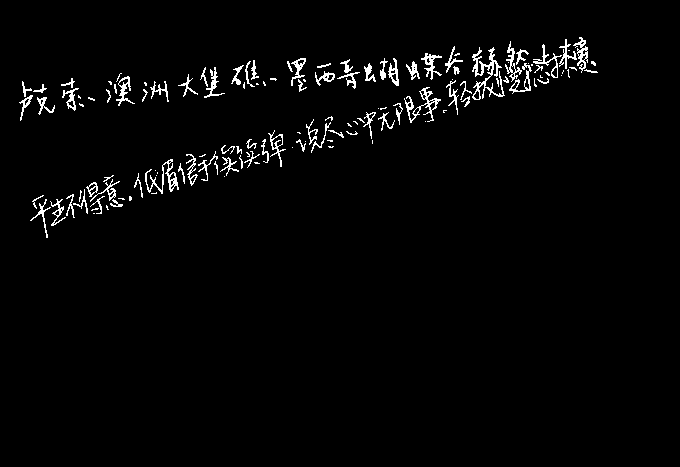 卢克索、澳洲大堡礁、墨西哥蝴蝶谷赫然
平生不得意。低眉信手续续弹.说尽心中无限事.轻拢慢捻抹